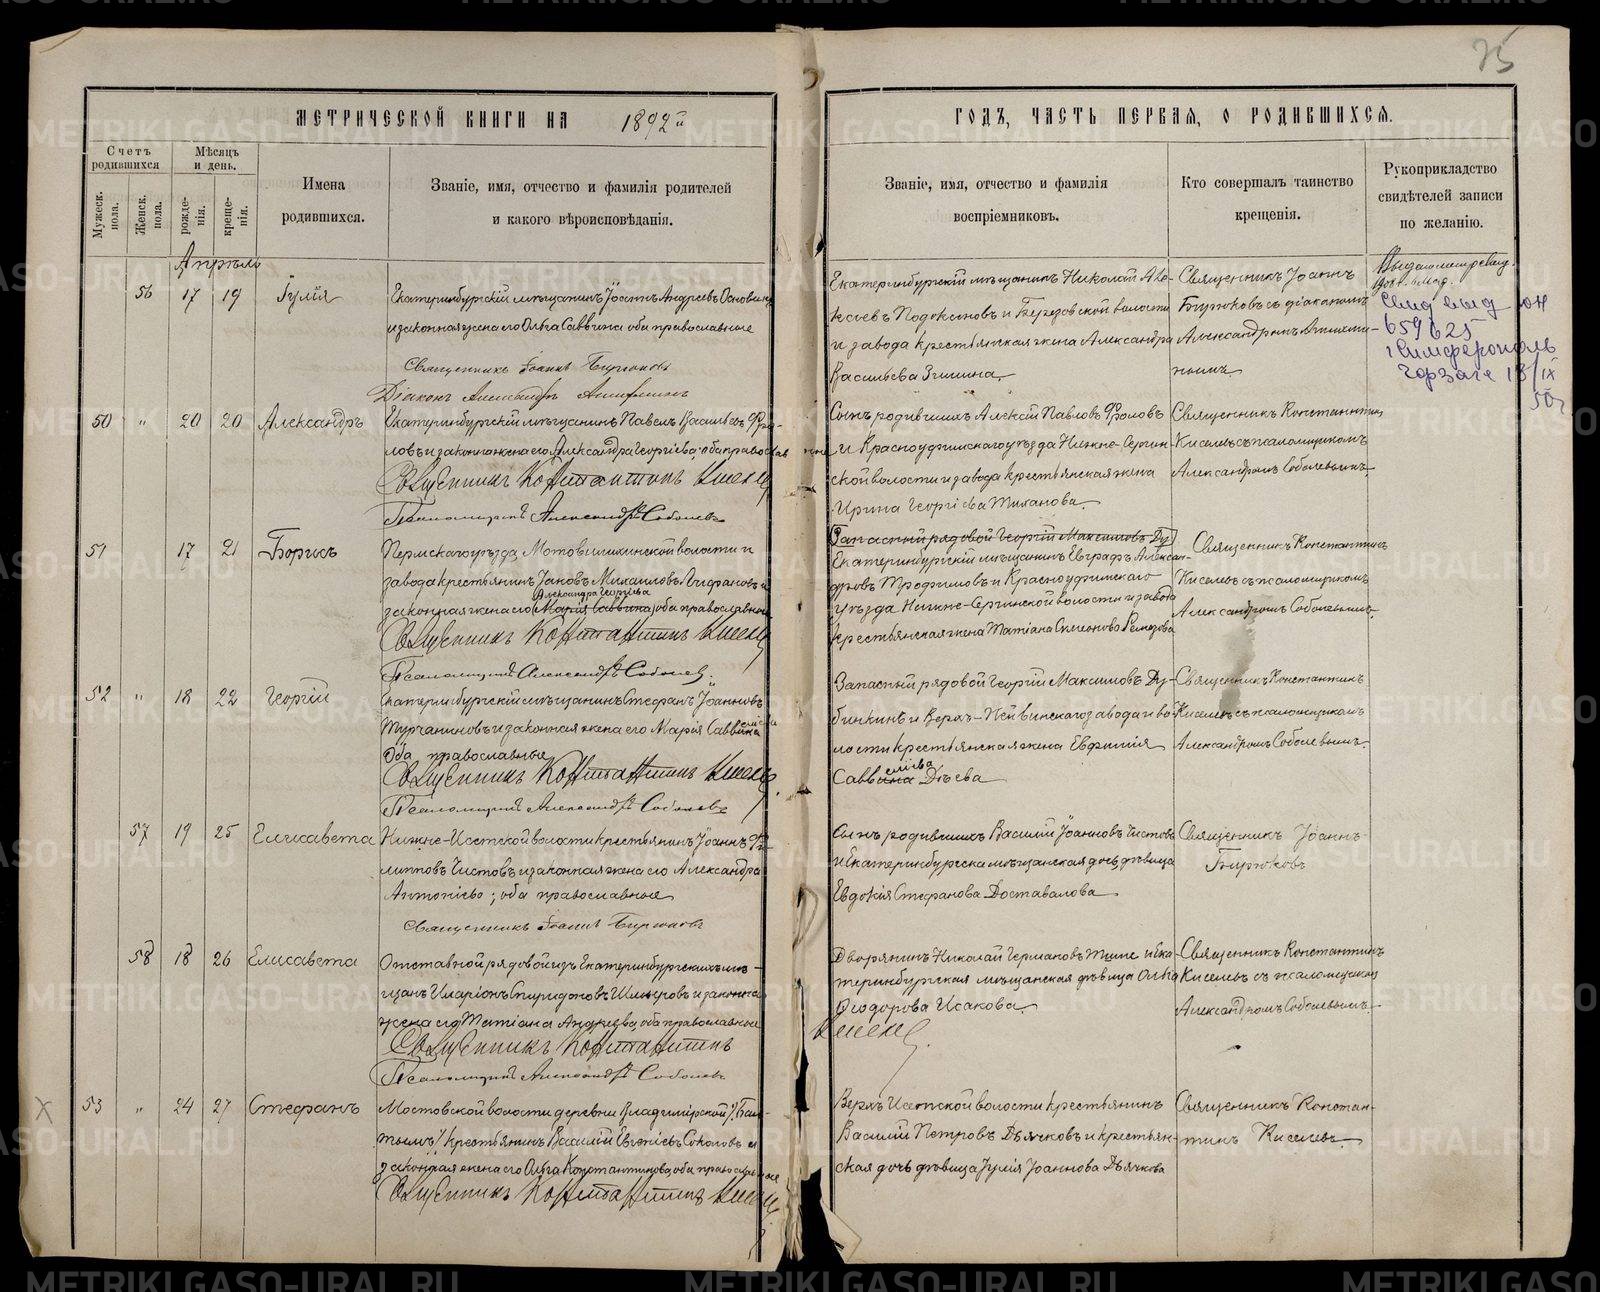 75
МЕТРИЧЕСКОЙ КНИГИ НА 1892й
ГОДЪ, ЧАСТЬ ПЕРВАЯ, О РОДИВШИХСЯ.
Счетъ родившихся
Мѣсяцъ и день.
Мужеск. пола.
Женск. пола.
рожденія.
крещенія.
Имена родившихся.
Званіе, имя, отчество и фамилія родителей
и какого вѣроисповѣданія.
Званіе, имя, отчество и фамилія
воспріемниковъ.
Кто совершалъ таинство
крещенія.
Рукоприкладство
свидѣтелей записи
по желанію.
Апрѣль
56 17 19 Іулія
Екатеринбургскій мѣщанинъ Іоаннъ Андреевъ
и законная жена его Ольга Саввина оба православные
Священникъ Іоаннъ Бирюковъ
Діаконъ Александръ
Екатеринбургскій мѣщанинъ Николай Але-
ксѣевъ и Березовской волости
и завода крестьянская жена Александра
Васильева Зимина.
Священникъ Іоаннъ
Бирюковъ съ діакономъ
Александромъ
659625
г Симферополь
50 " 20 20 Александръ
Екатеринбургскій мѣщанинъ Павелъ Васильевъ Фро-
ловъ и законная жена его Александра Георгіева, оба православные
Священникъ Константинъ Киселевъ
Псаломщикъ Александръ Соболевъ
Сынъ родившихъ Алексѣй Павловъ Фроловъ
и Красноуфимскаго уѣзда Нижне-Сергин-
ской волости и завода крестьянская жена
Ирина Георгіева Тиханова.
Священникъ Константинъ
Киселевъ съ псаломщикомъ
Александромъ Соболевымъ.
51 17 21 Борисъ
Пермскаго уѣзда, Мотовилихинской волости и
завода крестьянинъ Іаковъ Михаиловъ и
Александра Георгіева
законная жена его (Марія Саввина) оба православные
Священникъ Константинъ Киселевъ
Псаломщикъ Александръ Соболевъ.
Запасный рядовой Георгій Максимовъ Ду
Екатеринбургскій мѣщанинъ Евграфъ Алексан-
дровъ Трофимовъ и Красноуфимскаго
уѣзда Нижне-Сергинской волости и завода
крестьянская жена Татіана Симеонова Ремезова
Священникъ Константинъ
Киселевъ съ псаломщикомъ
Александромъ Соболевымъ.
52 " 18 22 Георгій
Екатеринбургскій мѣщанинъ Стефанъ Іоанновъ
Турчаниновъ и законная жена его Марія Саввина
Оба православные
Священникъ Константинъ Киселевъ.
Псаломщикъ Александръ Соболевъ
Запасный рядовой Георгій Максимовъ Ду-
бинкинъ и Верхъ-Нейвинскаго завода и во-
лости крестьянская жена Евфимія
Саввина Дѣева
Священникъ Константинъ
Киселевъ съ псаломщикомъ
Александромъ Соболевымъ.
57 19 25 Елисавета
Нижне-Исетской волости крестьянинъ Іоаннъ Фи-
липповъ Чистовъ и законная жена его Александра
Антоніева; оба православные
Священникъ Іоаннъ Бирюковъ
Сынъ родившихъ Василій Іоанновъ Чистовъ
и Екатеринбургска мѣщанская дочь дѣвица
Евдокія Стефанова Доставалова
Священникъ Іоаннъ
Бирюковъ
58 18 26 Елисавета
Отставной рядовой изъ Екатеринбургскихъ мѣ-
щанъ Иларіонъ Спиридоновъ и законная
жена его Татіана Андреева, оба православные
Священникъ Константинъ
Киселевъ.
Псаломщикъ Александръ Соболевъ
Дворянинъ Николай Германовъ Тиме и Ека-
теринбургская мѣщанская дѣвица Ольга
Ѳеодорова Исакова.
Священникъ Константинъ
Киселевъ съ псаломщикомъ
Александромъ Соболевымъ.
Х 53 " 24 27 Стефанъ
Мостовской волости деревни Владимірской
крестьянинъ Василій Евгеніевъ Соколовъ и
законная жена его Ольга Константинова, оба православные
Священникъ Константинъ Киселевъ
Верхъ Исетской волости крестьянинъ
Василій Петровъ Дьячковъ и крестьян-
ская дочь дѣвица Іулія Іоаннова Дьячкова
Священникъ Констан-
тинъ Киселевъ.
METRIKI.GASO-URAL.RU